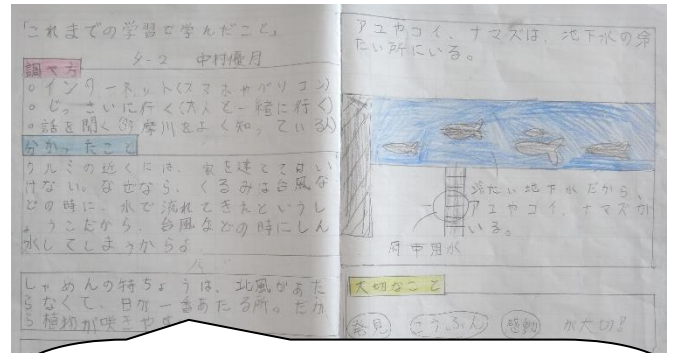 「これまでの学習で学んだこと」
4-2 中村優月
調べ方
○インターネット(スマホやパソコン)
○じっさいに行く(大人と一緒に行く)
○話を聞く 摩川をよく知っている人)
分かったこと
クルミの近くには、家を建ててはい
けない。なぜなら、くるみは台風な
どの時に、水で流れてきたというし
ょうこだから、台風などの時にしん
水してしまうからよ
しゃめんの特ちょうは、北風があた
らなくて、日が一番あたる所。だか
ら植物が咲きやす
アユやコイ、ナマズは、地下水の冷
たい所にいる。
冷たい地下水だから、
アユやコイ、ナマズが
いる。
府中用水
大切なこと
発見 こうふん 感動 が大切!